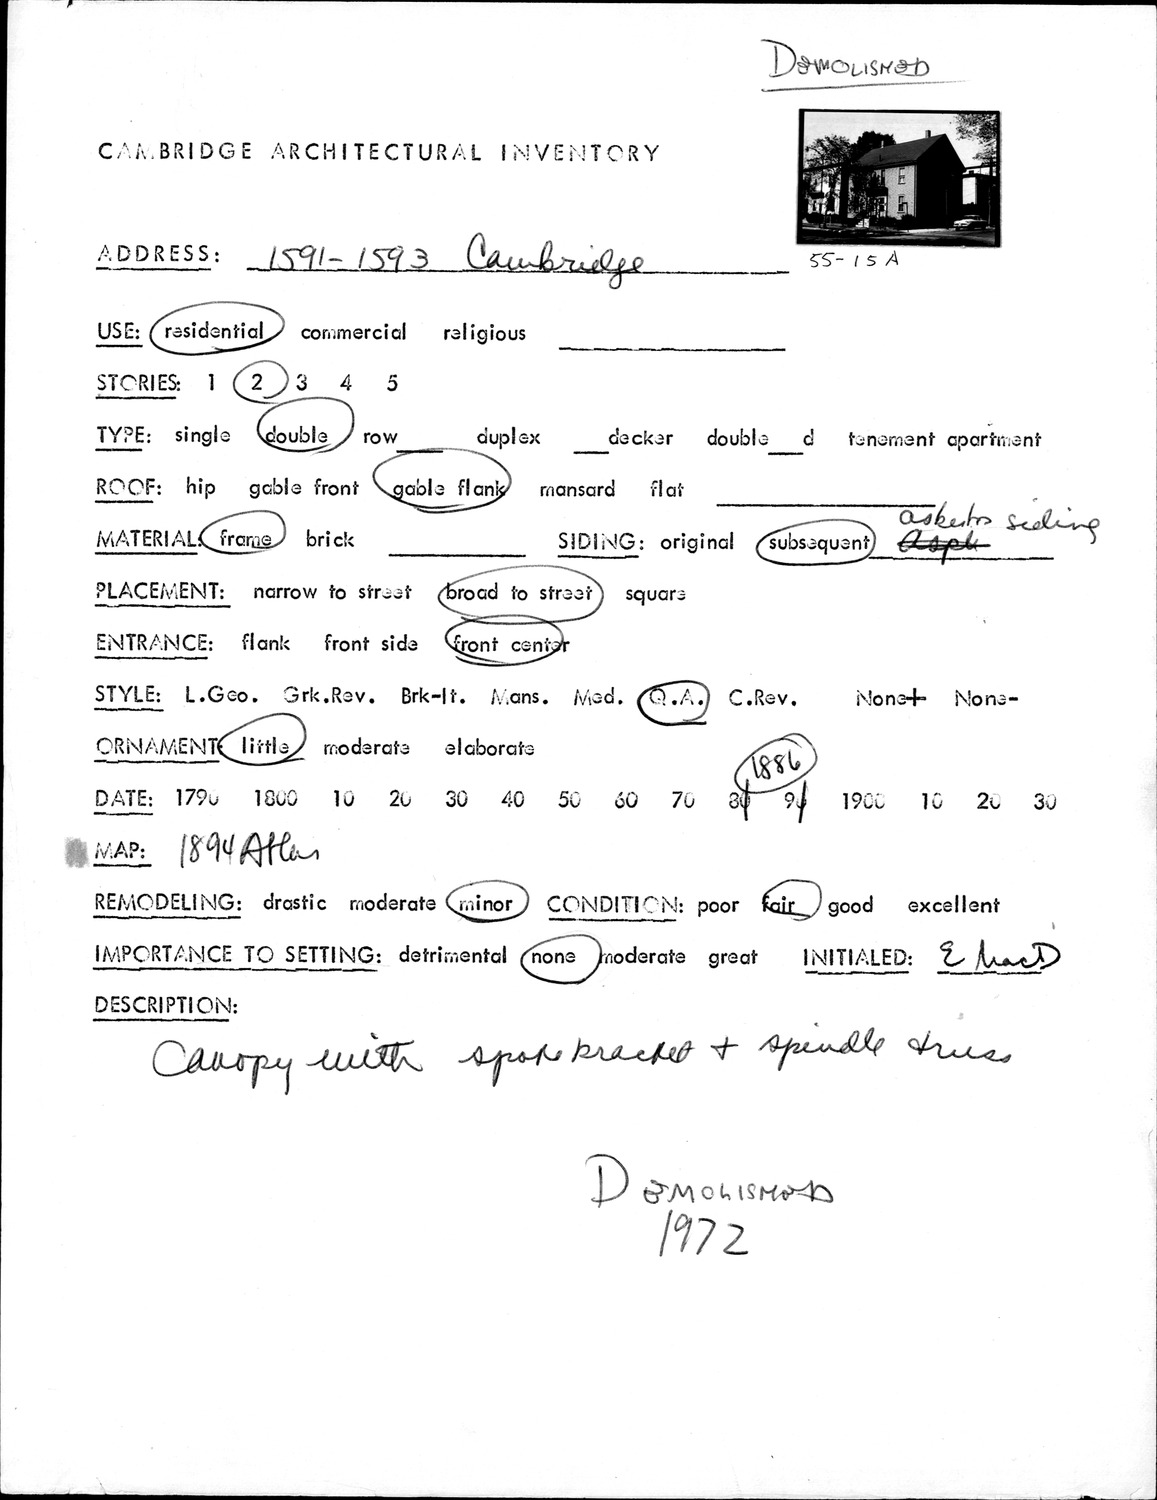 DEMOLISHED
CAMBRIDGE ARCHITECTURAL INVENTORY
ADDRESS: 1591-1593 Cambridge
55-15A
USE: residential commercial religious
STORIES: 1 2 3 4 5
TYPE: single double row___ duplex ___decker double___d tenement apartment
ROOF: hip gable front gable flank mansard flat
asbestos siding
MATERIAL: frame brick SIDING: original subsequent Asph
PLACEMENT: narrow to street broad to street square
ENTRANCE: flank front side front center
STYLE: L.Geo. Grk.Rev. Brk-It. Mans. Med. Q.A. C.Rev. None+ None-
ORNAMENT: little moderate elaborate
1886
DATE: 1790 1800 10 20 30 40 50 60 70 80 90 1900 10 20 30
MAP: 1894 Atlas
REMODELING: drastic moderate minor CONDITION: poor fair good excellent
IMPORTANCE TO SETTING: detrimental none moderate great INITIALED: E MacD
DESCRIPTION:
Canopy with spoke bracket + spindle truss
DEMOLISHED
1972